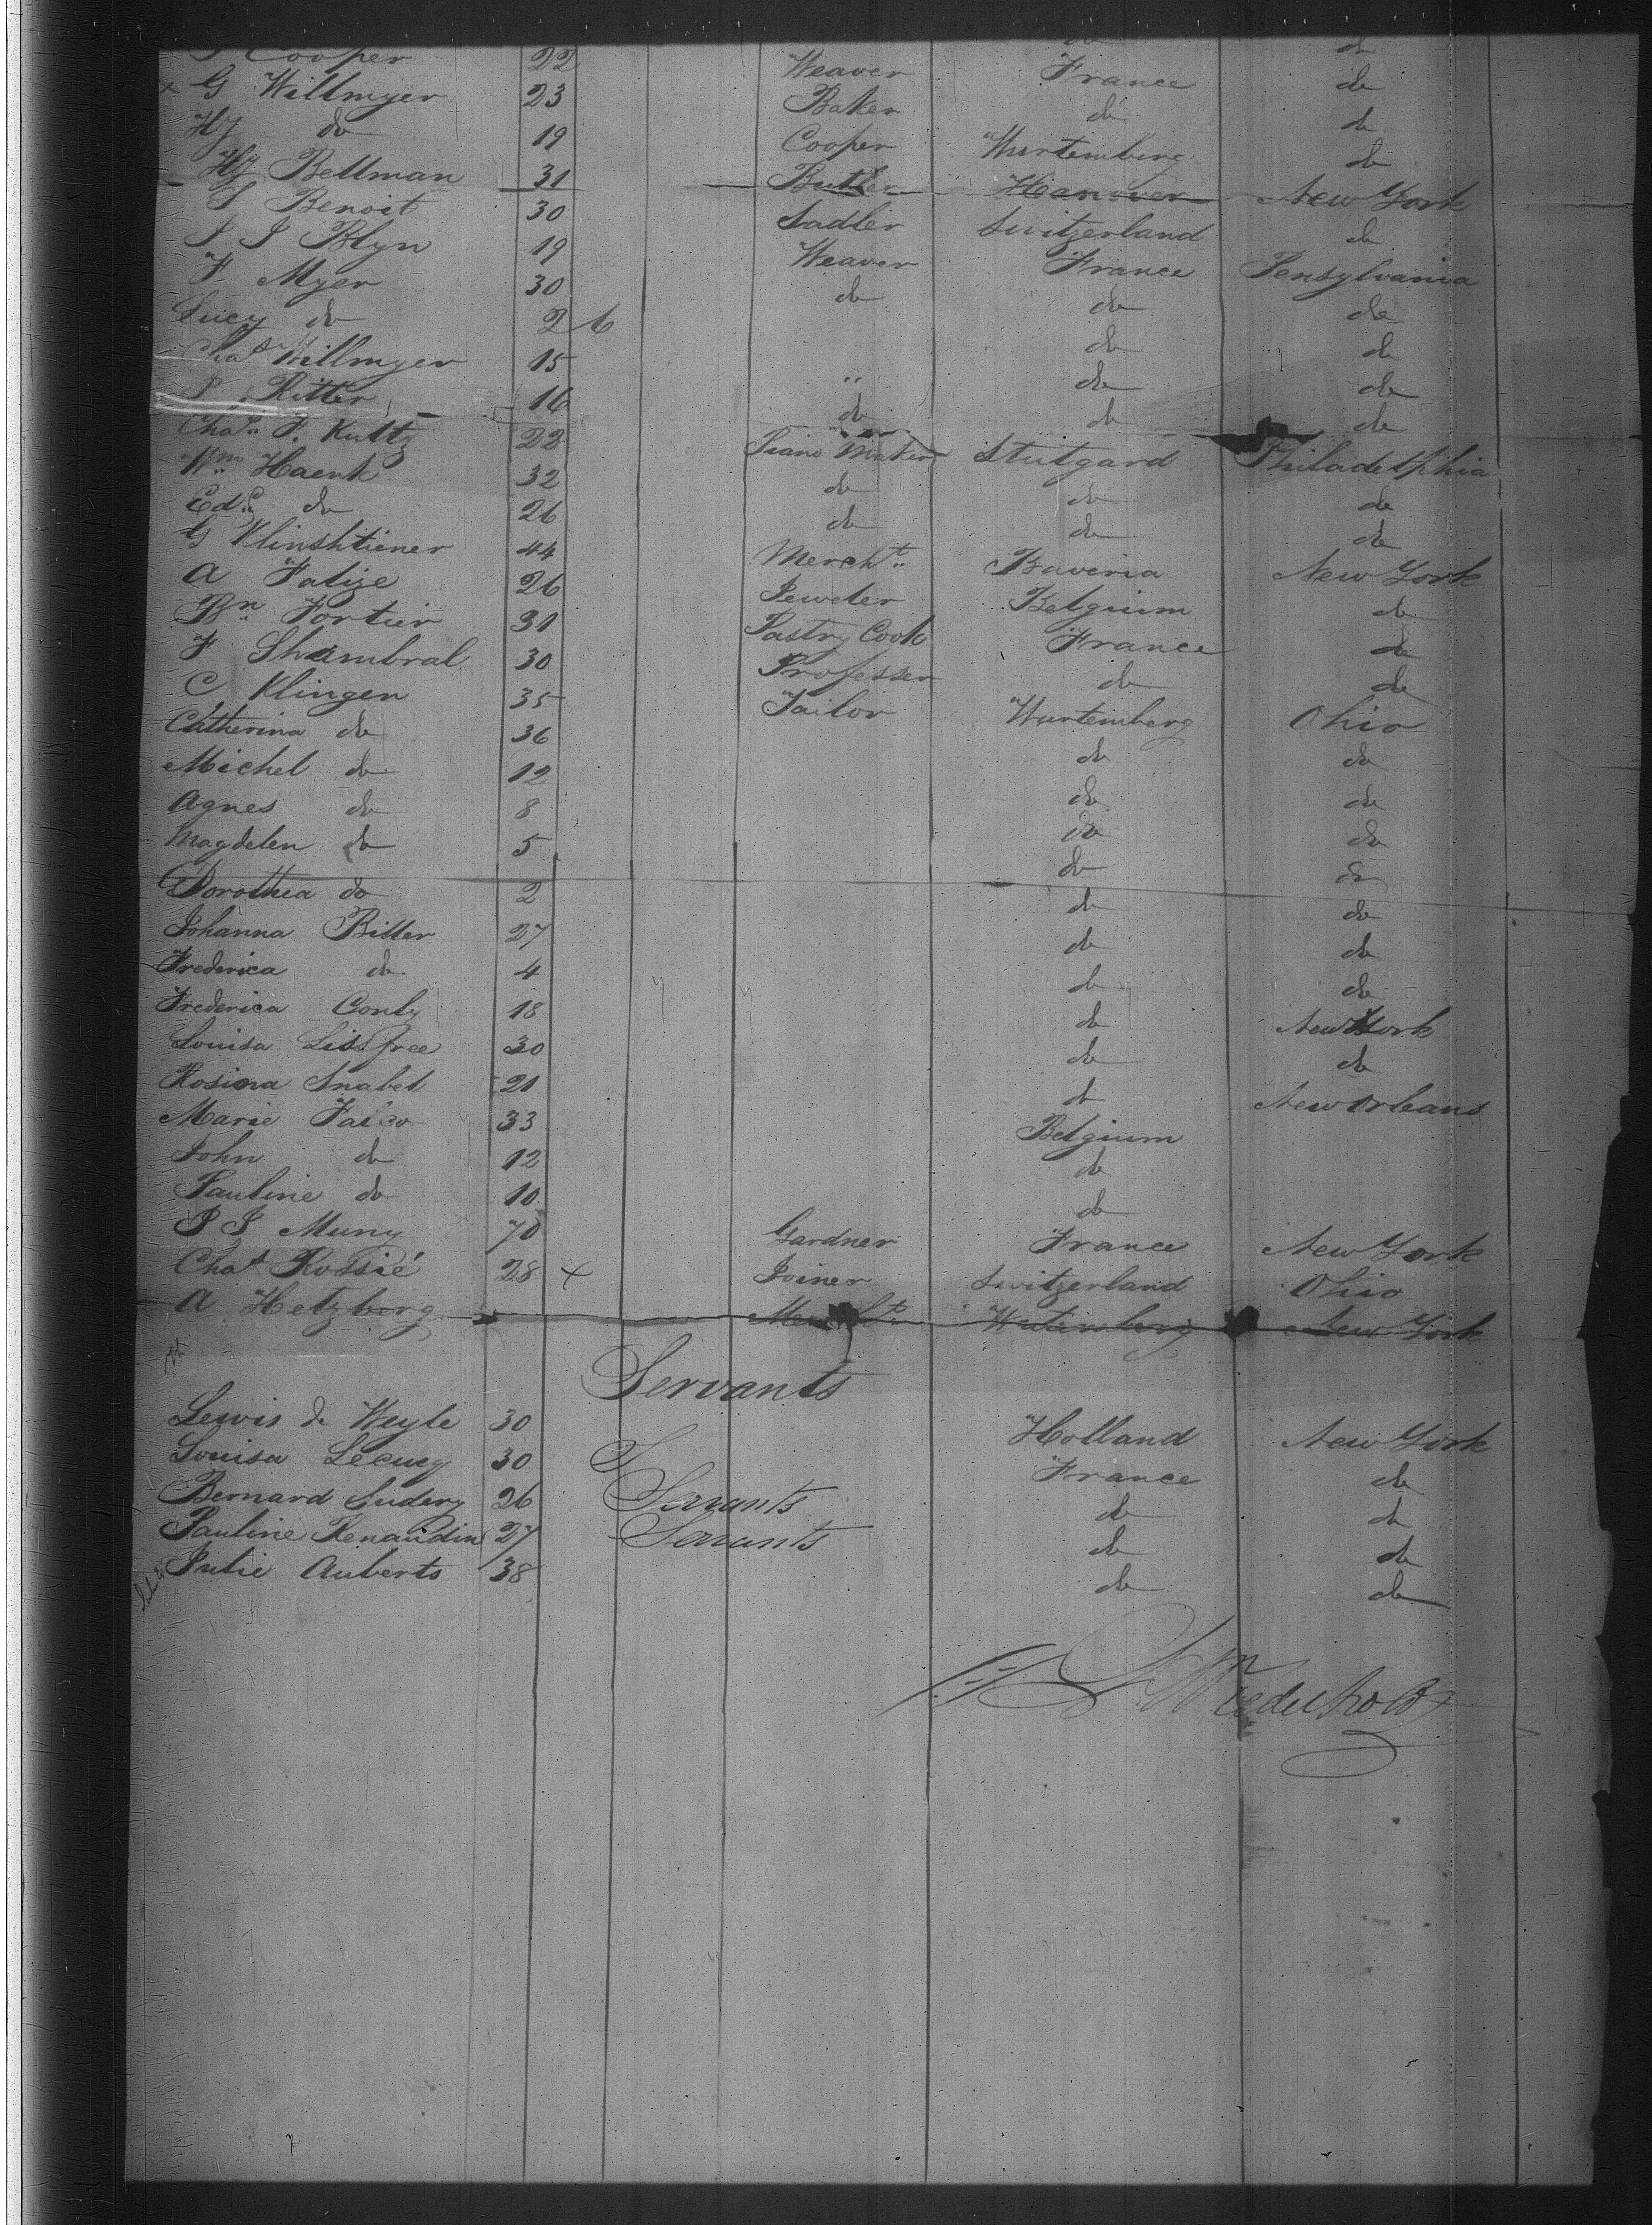 Cooper 22 Weaver France do
G Willmyer 23 Baker do do
Hy do 19 Cooper Wurtemberg do
Hy Bellman 31 Butler Hanover New York
S Benoit 30 Sadler Switzerland do
J J Blyn 19 Weaver France Pensylvania
F Myer 30 do do do
Lucy do 2 6 do do
Chas Willmyer 15 " do do
P Ritter 16 do do do
Chas F. Kultz 22 Piano Maker Stutgard Philadelphia
Wm Haenk 32 do do do
Ed. do 26 do do do
G Klinshtiener 44 Mercht Bavería New York
A Falize 26 Jeweler Belgium do
Bn Fortier 31 Pastry Cook France do
F Shambral 30 Professer do do
C Klingen 35 Tailor Wurtemberg Ohio
Catherina do 36 do do
Michel do 12 do do
Agnes do 8 do do
Magdelen do 5 do do
Dorothea do 2 do do
Johanna Ritter 27 do do
Frederica do 4 do do
Frederica Conly 18 do New York
Louisa 30 do do
Rosina Snabel 21 do New Orleans
Marie 33 Belgium
John do 12 do
Pauline do 10 do
P J Muny 70 Gardner France New York
Chas Rossié 28 + Joiner Switzerland Ohio
A Hetzberg Mercht Wutemberg New York
Servants
Lewis de Weyle 30 Holland New York
Louisa Lecucq 30 France do
Bernard Sudery 26 Servants do do
Pauline Renaudin 27 Servants do do
Julie Auberts 38 do do
Wiederholdt